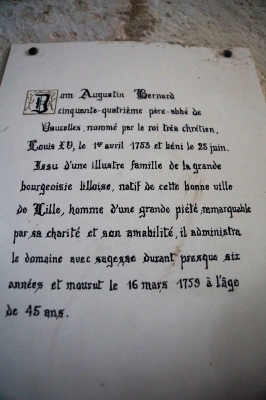 Dom Augustin Bernard
cinquante-quatrième père-abbé de
Vaucelles, nommé par le roi très chrétien,
Louis XV, le 1er avril 1753 et béni le 25 juin.
Issu d'une illustre famille de la grande
bourgeoisie lilloise, natif de cette bonne ville
de Lille, homme d'une grande piété, remarquable
par sa charité et son amabilité, il administra
le domaine avec sagesse durant presque six
années et mourut le 16 mars 1759 à l'âge
de 45 ans.